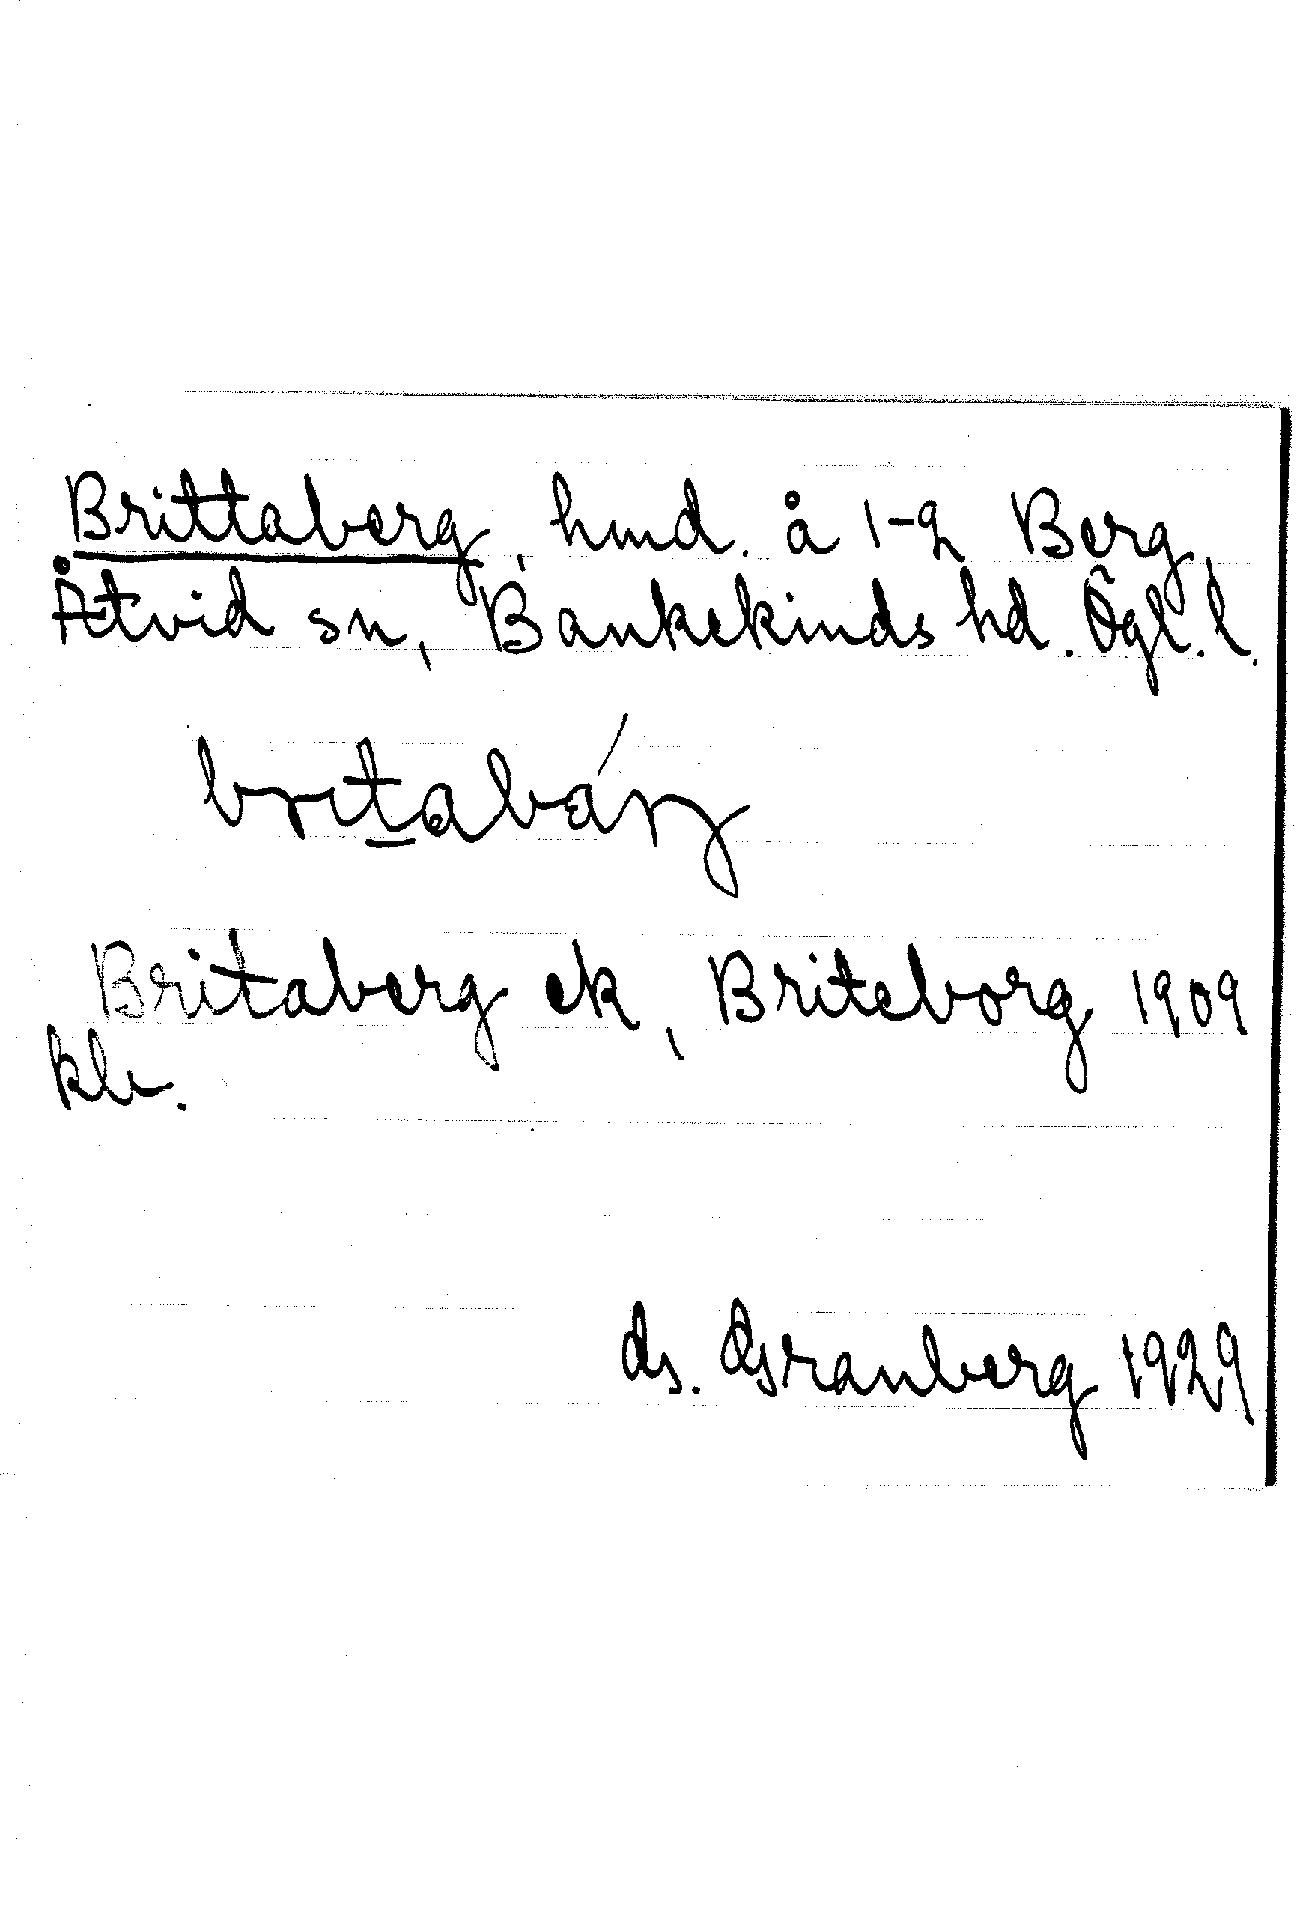 Brittaberg, hmd. å 1-2 Berg,
Åtvid sn, Bankekinds hd. Ögl. l.
britabärg
Britaberg ek, Briteborg 1909
kb.
ds. Granberg 1929